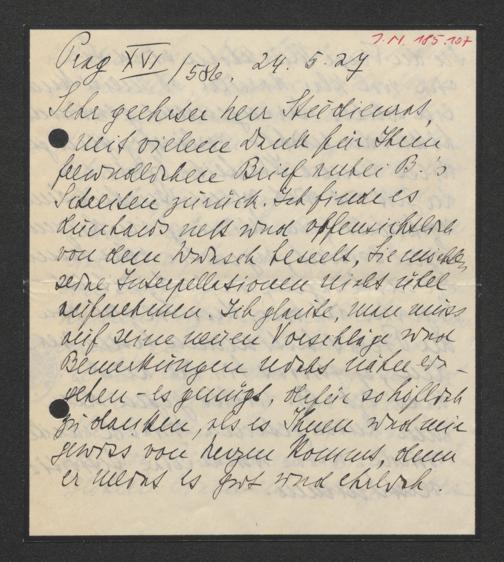 J.N. 185.107
Prag XVI/586. 24. 5. 27
Sehr geehrter Herr Studienrat,
mit vielem Dank für Ihren
freundlichen Brief anbei B.'s
Schreiben zurück. Ich finde es
durchaus nett und offensichtlich
von dem Wunsch beseelt, Sie möchten
seine Interpellationen nicht übel
aufnehmen. Ich glaube, man muss
auf seine neuen Vorschläge und
Bemerkungen nichts näher ein-
gehen - es genügt, dafür so höflich
zu danken, als es Ihnen und mir
gewiss von Herzen kommt, denn
er meint es gut und ehrlich.